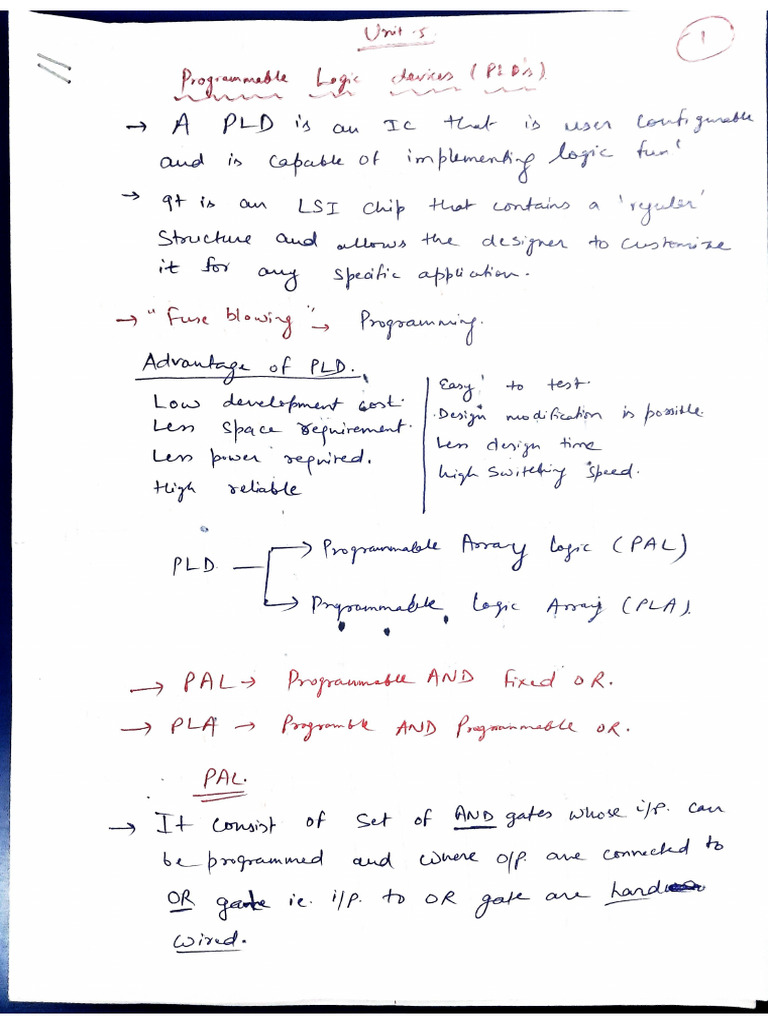 Unit-5
1
Programmable Logic devices (PLD's)
→ A PLD is an IC that is user configurable
and is capable of implementing logic funⁿ
→ It is an LSI chip that contains a 'reguler'
Structure and allows the designer to customize
it for any specific application.
→ "Fuse blowing" → Programming.
Advantage of PLD.
Low development cost.
Less space requirement.
Less power required.
High reliable
Easy to test.
Design modification is possible.
Less design time
high switching speed.
PLD → Programmable Array Logic (PAL)
→ Programmable Logic Array (PLA).
→ PAL → Programmable AND Fixed OR.
→ PLA → Programble AND Programmable OR.
PAL.
→ It consist of set of AND gates whose i/p. can
be programmed and where o/p. are connected to
OR gate ie. i/p. to OR gate are hard
wired.